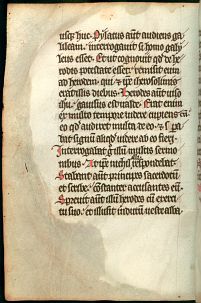 usq; huc. Pilatus aut audiens ga
lileam. interrogauit si homo gali
leus esset. Et ut cognouit qd de he
rodis potestate esset. remisit eum
ad herodem. qui & ipse iherosolimis
erat illis diebus. Herodes aut uiso
ihu. gauisus est ualde. Erat enim
ex multo tempore uidere cupiens eu
eo qd audiret multa de eo. & spe
rabat signu aliqd uidere ab eo fieri.
Interrogabat g illum multis sermo
nibus. At ipse nichil respondebat
Stabant aut principes sacerdotu
et scribe. constanter accusantes eu.
Spreuit aut illum herodes cu exerci
tu suo. et illusit indutu ueste alba.